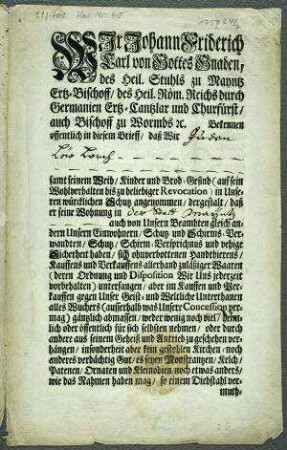 WIr Johann Friderich
Carl von Gottes Gnaden,
des Heil. Stuhls zu Mayntz
Ertz-Bischoff / des Heil. Röm. Reichs durch
Germanien Ertz-Cantzlar und Churfürst /
auch Bischoff zu Wormbs ꝛc. Bekennen
offentlich in diesem Brieff / daß Wir Juden
Löw
samt seinem Weib / Kinder und Brod-Gesind (auf sein
Wohlverhalten bis zu beliebiger Revocation) in Unse-
ren würcklichen Schutz angenommen / dergestalt / daß
er seine Wohnung in der Statt Mayntz
auch von Unsern Beambten gleich an-
dern Unsern Einwohnern / Schutz und Schirms-Ver-
wandten / Schutz / Schirm / Versprüchnus und vehige
Sicherheit haben / sich ohnverbottenen Handthierens /
Kauffens und Verkauffens allerhand zuläßiger Waaren
(deren Ordnung und Disposition Wir Uns jederzeit
vorbehalten) unterfangen / aber im Kauffen und Ver-
kauffen gegen Unser Geist- und Weltliche Unterthanen
alles Wuchers (ausserhalb was Unser Concession ver-
mag) gäntzlich abmassen / weder wenig noch viel / heim-
lich oder öffentlich für sich selbsten nehmen / oder durch
andere aus seinem Geheiß und Antrieb zu geschehen ver-
hängen / insonderheit aber kein gestohlen Kirchen- noch
anderes verdächtig Gut / es seyen Monstrantzen / Kelch /
Patenen / Ornaten und Kleinodien / noch etwas anders /
wie das Nahmen haben mag / so einem Diebstahl ver-
muth-